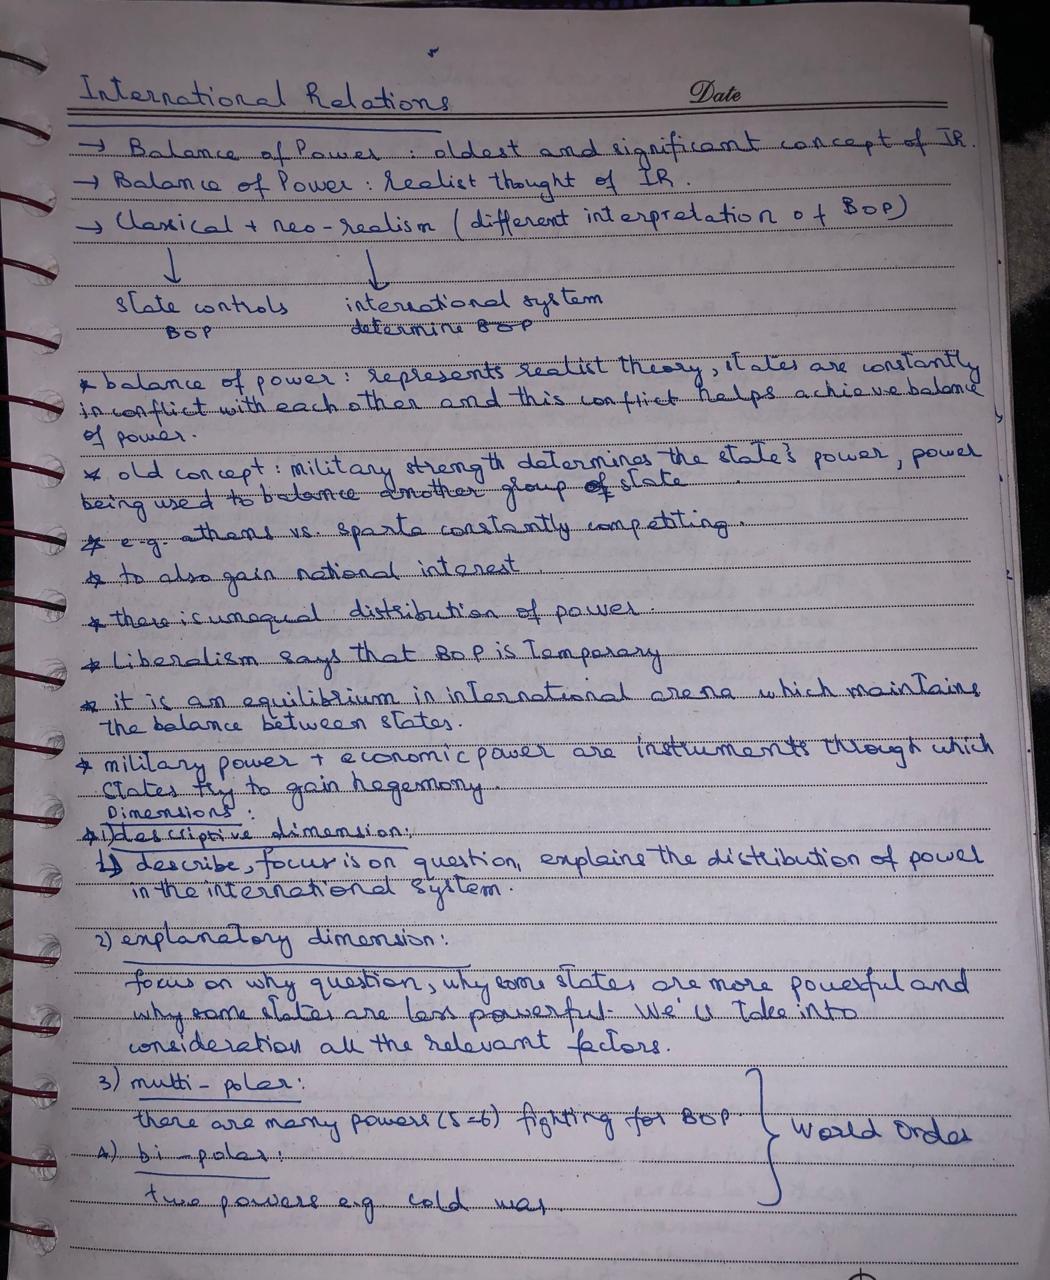 International Relations
Date
→ Balance of Power : oldest and significant concept of IR.
→ Balance of Power : realist thought of IR.
→ Classical + neo-realism (different interpretation of BOP)
↓ ↓
state controls international system
BOP determine BOP
* balance of power : represents realist theory, states are constantly
in conflict with each other and this conflict helps achieve balance
of power.
* old concept : military strength determines the state's power, power
being used to balance another group of state
* e.g. athens vs. sparta constantly competiting.
* to also gain national interest
* there is unequal distribution of power.
* liberalism says that BOP is Temporary
* it is an equilibrium in international arena which maintains
the balance between states.
* military power + economic power are instruments through which
states try to gain hegemony.
Dimensions :
1) descriptive dimension:
describe, focus is on question, explains the distribution of power
in the international system.
2) explanatory dimension:
focus on why question, why some states are more powerful and
why some states are less powerful. We'll Take into
consideration all the relevant factors.
3) multi-polar:
there are many powers (5-6) fighting for BOP
World Order
4) bi-polar:
two powers e.g cold war.